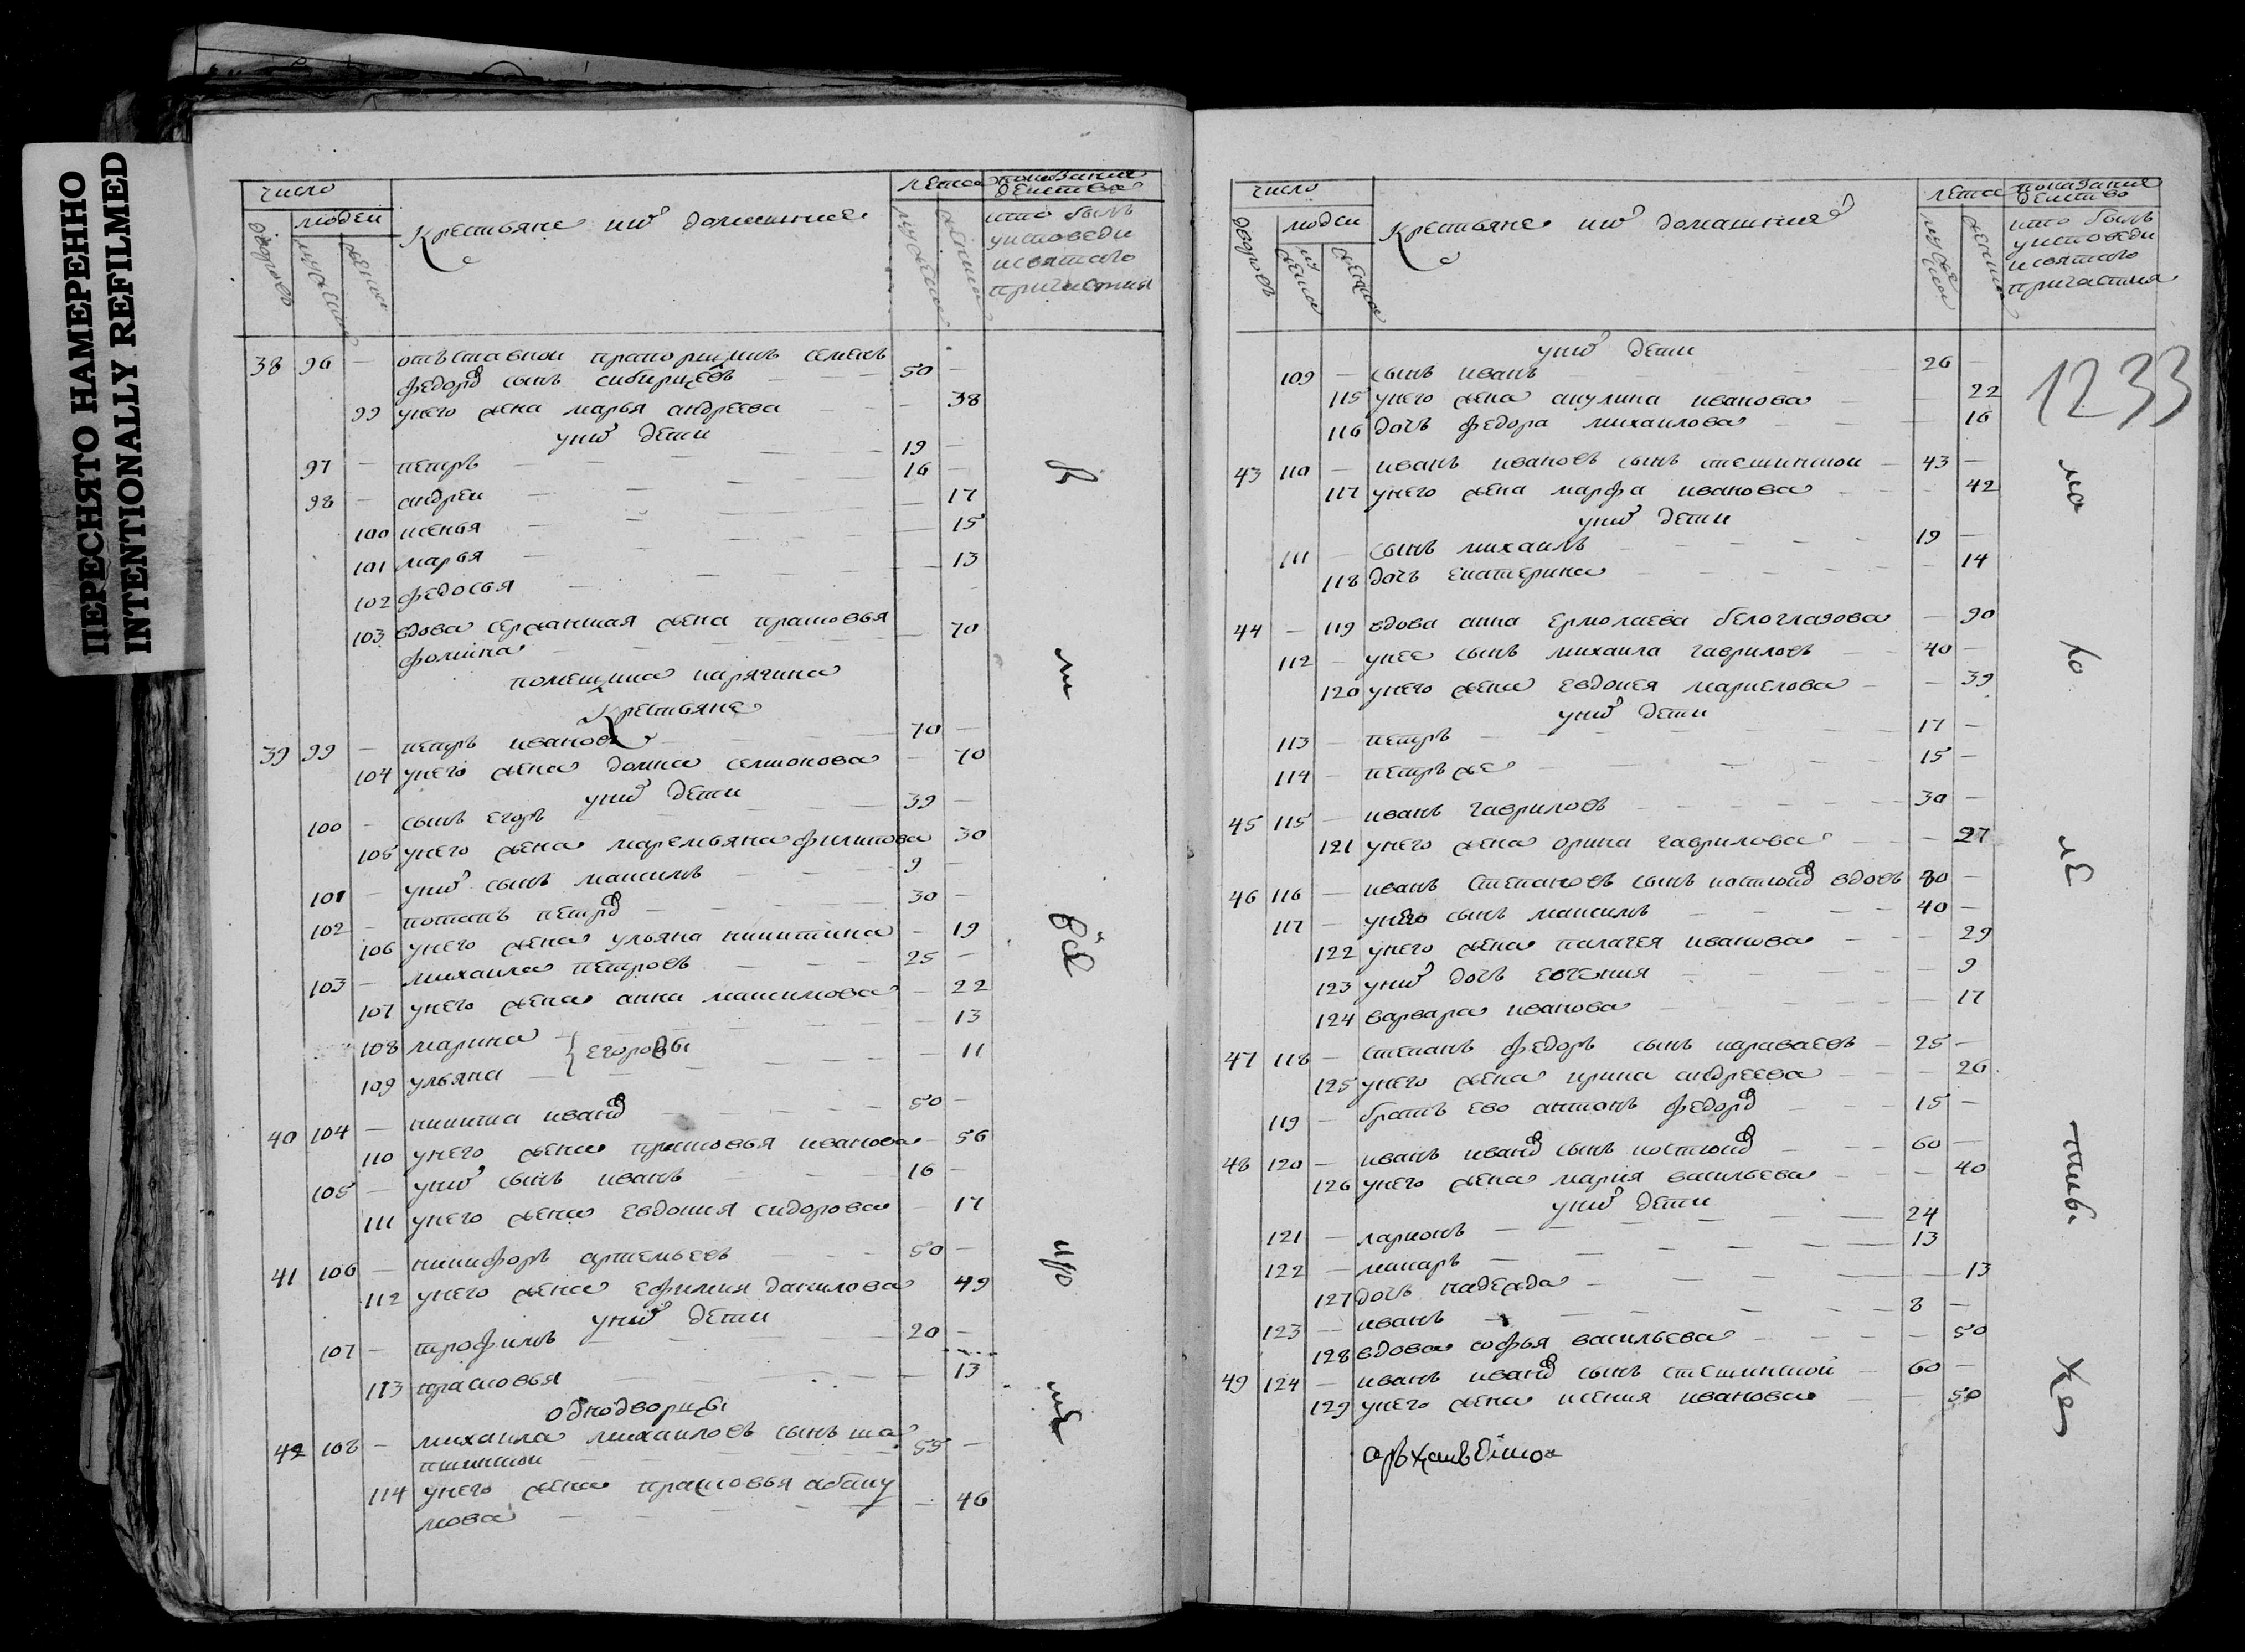 ПЕРЕСНЯТО НАМЕРЕННО
INTENTIONALLY REFILMED
число
людей
дворовъ
мужеска
женска
Крестьяне ихъ домашние
лета
мужеска
женска
показание действа
кто былъ
у исповеди
и святаго
причастия
38 96 — отъставной прапорщикъ семенъ
федоровъ сынъ сибирцевъ — 50 —
99 у него жена марья андреева — 38
у них дети
97 — петръ — 19 —
98 — андрей — 16 —
100 ксенья — 17
101 марья — 15
102 федосья — 13
103 вдова сержантшая жена прасковья
фомина — 70
помещика карягина
Крестьяне
39 99 — петръ ивановъ — 70 —
104 у него жена домна селионова — 70
у них дети
100 — сынъ егоръ — 39 —
105 у него жена маремьяна филипова 30
101 — у них сынъ максимъ — 9 —
102 — потапъ петровъ — 30 —
106 у него жена ульяна никитина — 19
103 — михаила петровъ — 25 —
107 у него жена анна максимова — 22
108 марина — 13
егоровы
109 ульяна — 11
40 104 — никита ивановъ — 50 —
110 у него жена прасковья иванова — 56
105 — у них сынъ иванъ — 16 —
111 у него жена евдокия сидорова — 17
41 106 — никифоръ артемьевъ — 50 —
112 у него жена ефимия данилова 49
у них дети
107 — трофимъ — 20 —
113 прасковья — 13
однодворцы
42 108 — михаила михаиловъ сынъ ша
пшинской — 55 —
114 у него жена прасковья абаку
мова — 46
число
людей
дворовъ
мужеска
женска
Крестьяне ихъ домашния
лета
мужеска
женска
показание действо
кто былъ
у исповеди
и святаго
причастия
1233
у них дети
109 — сынъ иванъ — 26 —
115 у него жена акулина иванова — 22
116 дочь федора михаилова — 16
43 110 — иванъ ивановъ сынъ стешинской — 43 —
117 у него жена марфа иванова — 42
у них дети
111 — сынъ михаилъ — 19 —
118 дочь екатерина — 14
44 — 119 вдова анна ермолаева белоглазова — 90
112 — у нее сынъ михаила гавриловъ — 40 —
120 у него жена евдокея маркелова — 39
у них дети
113 — петръ — 17 —
114 — петръ же — 15 —
45 115 — иванъ гавриловъ — 30 —
121 у него жена орина гаврилова — 27
46 116 — иванъ степановъ сынъ костюковъ вдовъ 80 —
117 — у него сынъ максимъ — 40 —
122 у него жена палагея иванова — 29
123 у них дочь евгения — 9
124 варвара иванова — 17
47 118 — степанъ федоръ сынъ караваевъ — 25 —
125 у него жена ирина андреева — 26
119 — братъ ево антонъ федоровъ — 15 —
48 120 — иванъ ивановъ сынъ костюковъ — 60 —
126 у него жена мария васильева — 40
у них дети
121 — ларионъ — 24
122 — макаръ — 13
127 дочь надежда — 13
123 — иванъ — 8 —
128 вдова софья васильева — 50
49 124 — иванъ ивановъ сынъ стешинской — 60 —
129 у него жена ксения иванова — 50